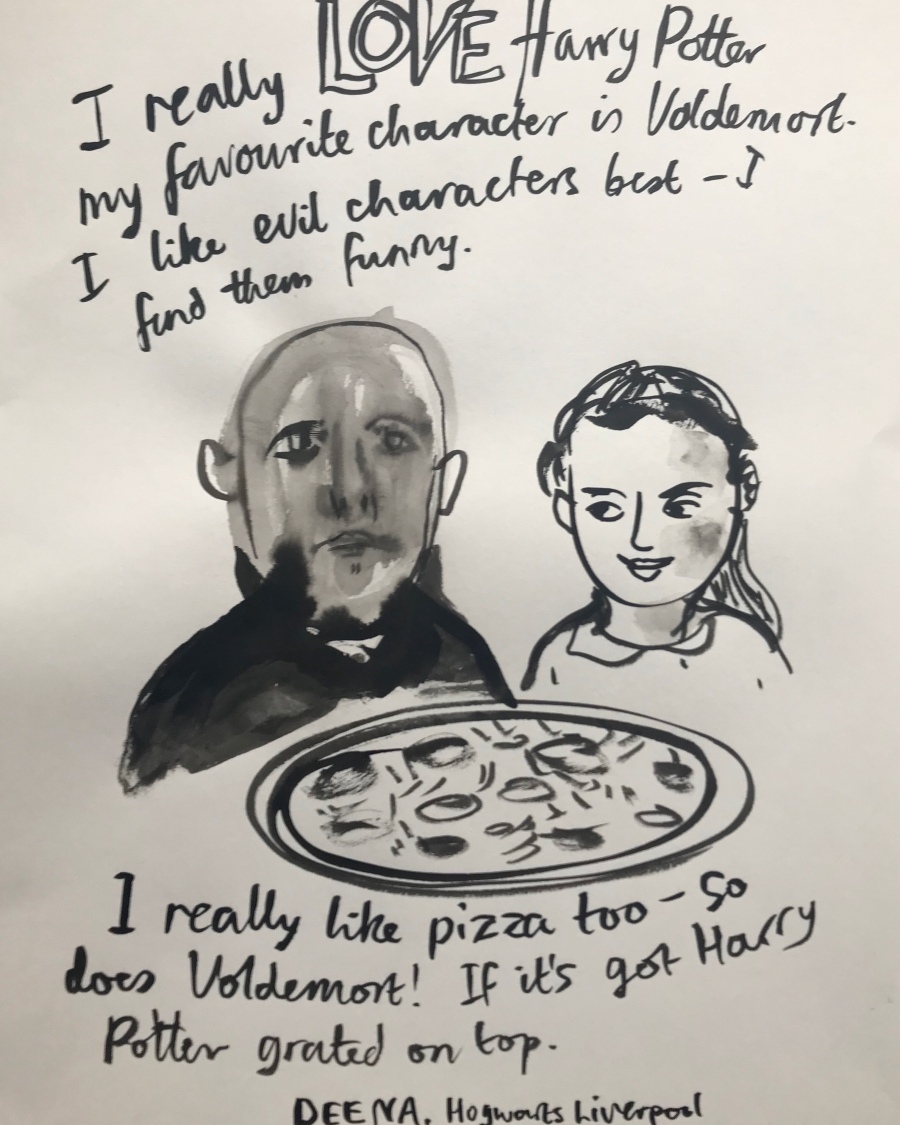 I really LOVE Harry Potter
my favourite character is Voldemort.
I like evil characters best - I
find them funny.
I really like pizza too - so
does Voldemort! If it's got Harry
Potter grated on top.
DEENA. Hogwarts Liverpool